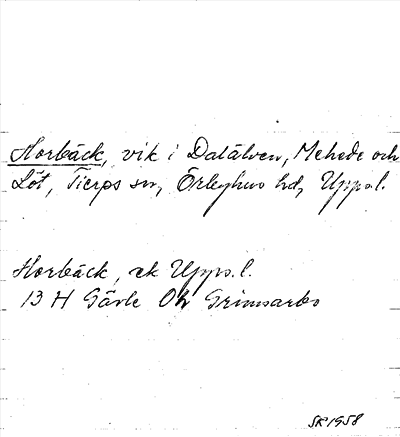 Horbäck, vik i Dalälven, Mehede och
Löt, Tierps sn, Örbyhus hd, Upps.l.
Horbäck, ek Upps.l.
13 H Gävle Grinsarbo
SK 1958